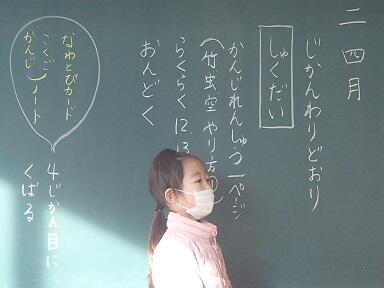 二四月
じかんわりどおり
しゅくだい
かんじれんしゅう一ページ
(竹虫空 やり方①)
らくらく 12.13
おんどく
なわとびカード
こくご
かんじ)ノート
4じかん目に
くばる